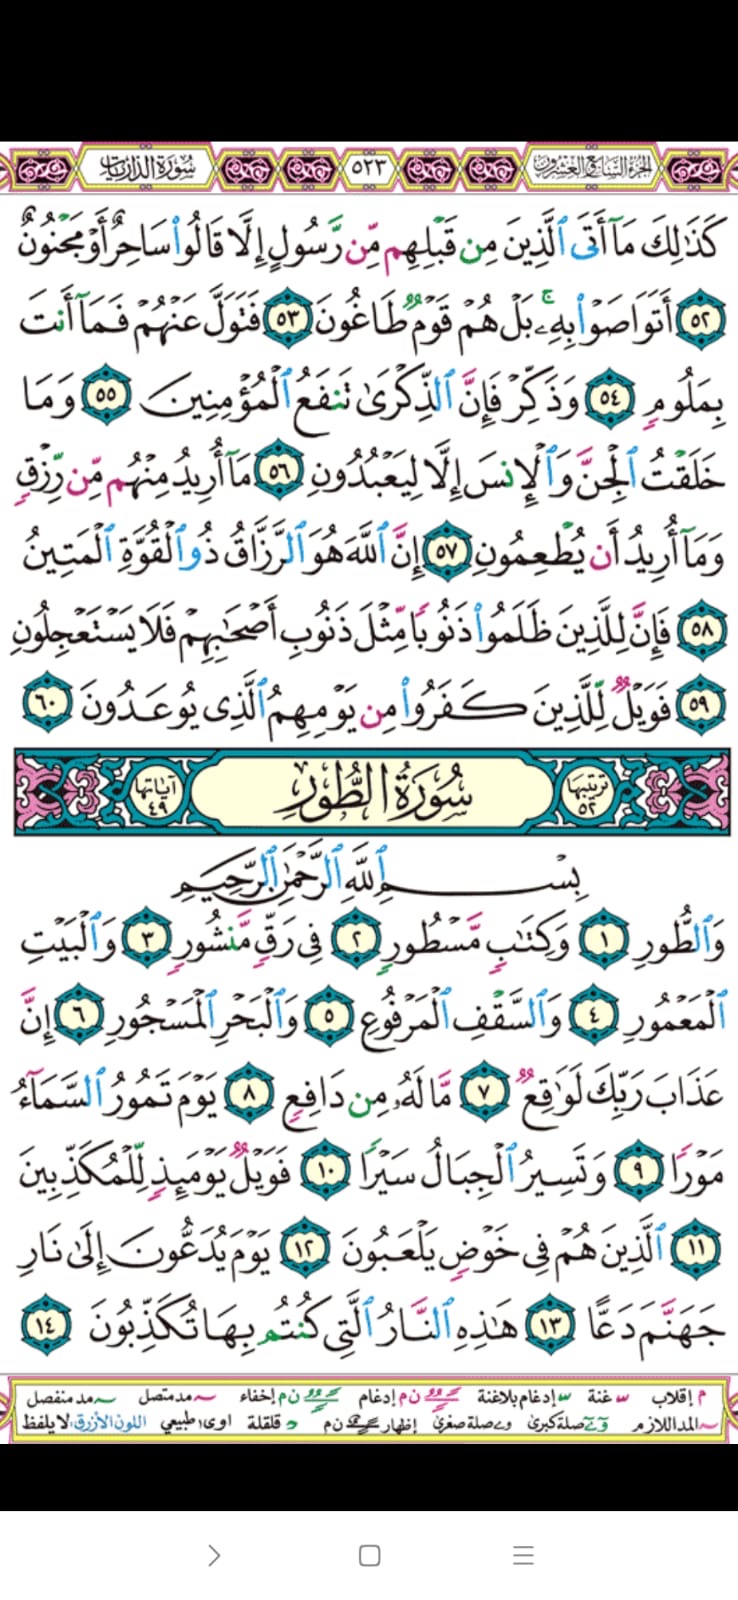 الجزء السابع والعشرون ٥٢٣ سورة الذاريات
كَذَٰلِكَ مَآ أَتَى ٱلَّذِينَ مِن قَبْلِهِم مِّن رَّسُولٍ إِلَّا قَالُوا۟ سَاحِرٌ أَوْ مَجْنُونٌ
٥٢ أَتَوَاصَوْا۟ بِهِۦ ۚ بَلْ هُمْ قَوْمٌ طَاغُونَ ٥٣ فَتَوَلَّ عَنْهُمْ فَمَآ أَنتَ
بِمَلُومٍ ٥٤ وَذَكِّرْ فَإِنَّ ٱلذِّكْرَىٰ تَنفَعُ ٱلْمُؤْمِنِينَ ٥٥ وَمَا
خَلَقْتُ ٱلْجِنَّ وَٱلْإِنسَ إِلَّا لِيَعْبُدُونِ ٥٦ مَآ أُرِيدُ مِنْهُم مِّن رِّزْقٍ
وَمَآ أُرِيدُ أَن يُطْعِمُونِ ٥٧ إِنَّ ٱللَّهَ هُوَ ٱلرَّزَّاقُ ذُو ٱلْقُوَّةِ ٱلْمَتِينُ
٥٨ فَإِنَّ لِلَّذِينَ ظَلَمُوا۟ ذَنُوبًا مِّثْلَ ذَنُوبِ أَصْحَٰبِهِمْ فَلَا يَسْتَعْجِلُونِ
٥٩ فَوَيْلٌ لِّلَّذِينَ كَفَرُوا۟ مِن يَوْمِهِمُ ٱلَّذِى يُوعَدُونَ ٦٠
ترتيبها ٥٢ سُورَةُ الطُّورِ آياتها ٤٩
بِسْمِ ٱللَّهِ ٱلرَّحْمَٰنِ ٱلرَّحِيمِ
وَٱلطُّورِ ١ وَكِتَٰبٍ مَّسْطُورٍ ٢ فِى رَقٍّ مَّنشُورٍ ٣ وَٱلْبَيْتِ
ٱلْمَعْمُورِ ٤ وَٱلسَّقْفِ ٱلْمَرْفُوعِ ٥ وَٱلْبَحْرِ ٱلْمَسْجُورِ ٦ إِنَّ
عَذَابَ رَبِّكَ لَوَٰقِعٌ ٧ مَّا لَهُۥ مِن دَافِعٍ ٨ يَوْمَ تَمُورُ ٱلسَّمَآءُ
مَوْرًا ٩ وَتَسِيرُ ٱلْجِبَالُ سَيْرًا ١٠ فَوَيْلٌ يَوْمَئِذٍ لِّلْمُكَذِّبِينَ
١١ ٱلَّذِينَ هُمْ فِى خَوْضٍ يَلْعَبُونَ ١٢ يَوْمَ يُدَعُّونَ إِلَىٰ نَارِ
جَهَنَّمَ دَعًّا ١٣ هَٰذِهِ ٱلنَّارُ ٱلَّتِى كُنتُم بِهَا تُكَذِّبُونَ ١٤
م إقلاب غنة إدغام بلاغنة ن م إدغام ن م إخفاء مد متصل مد منفصل
المد اللازم صلة كبرى صلة صغرى إظهار ن م قلقلة اوى طبيعي اللون الأزرق: لا يلفظ